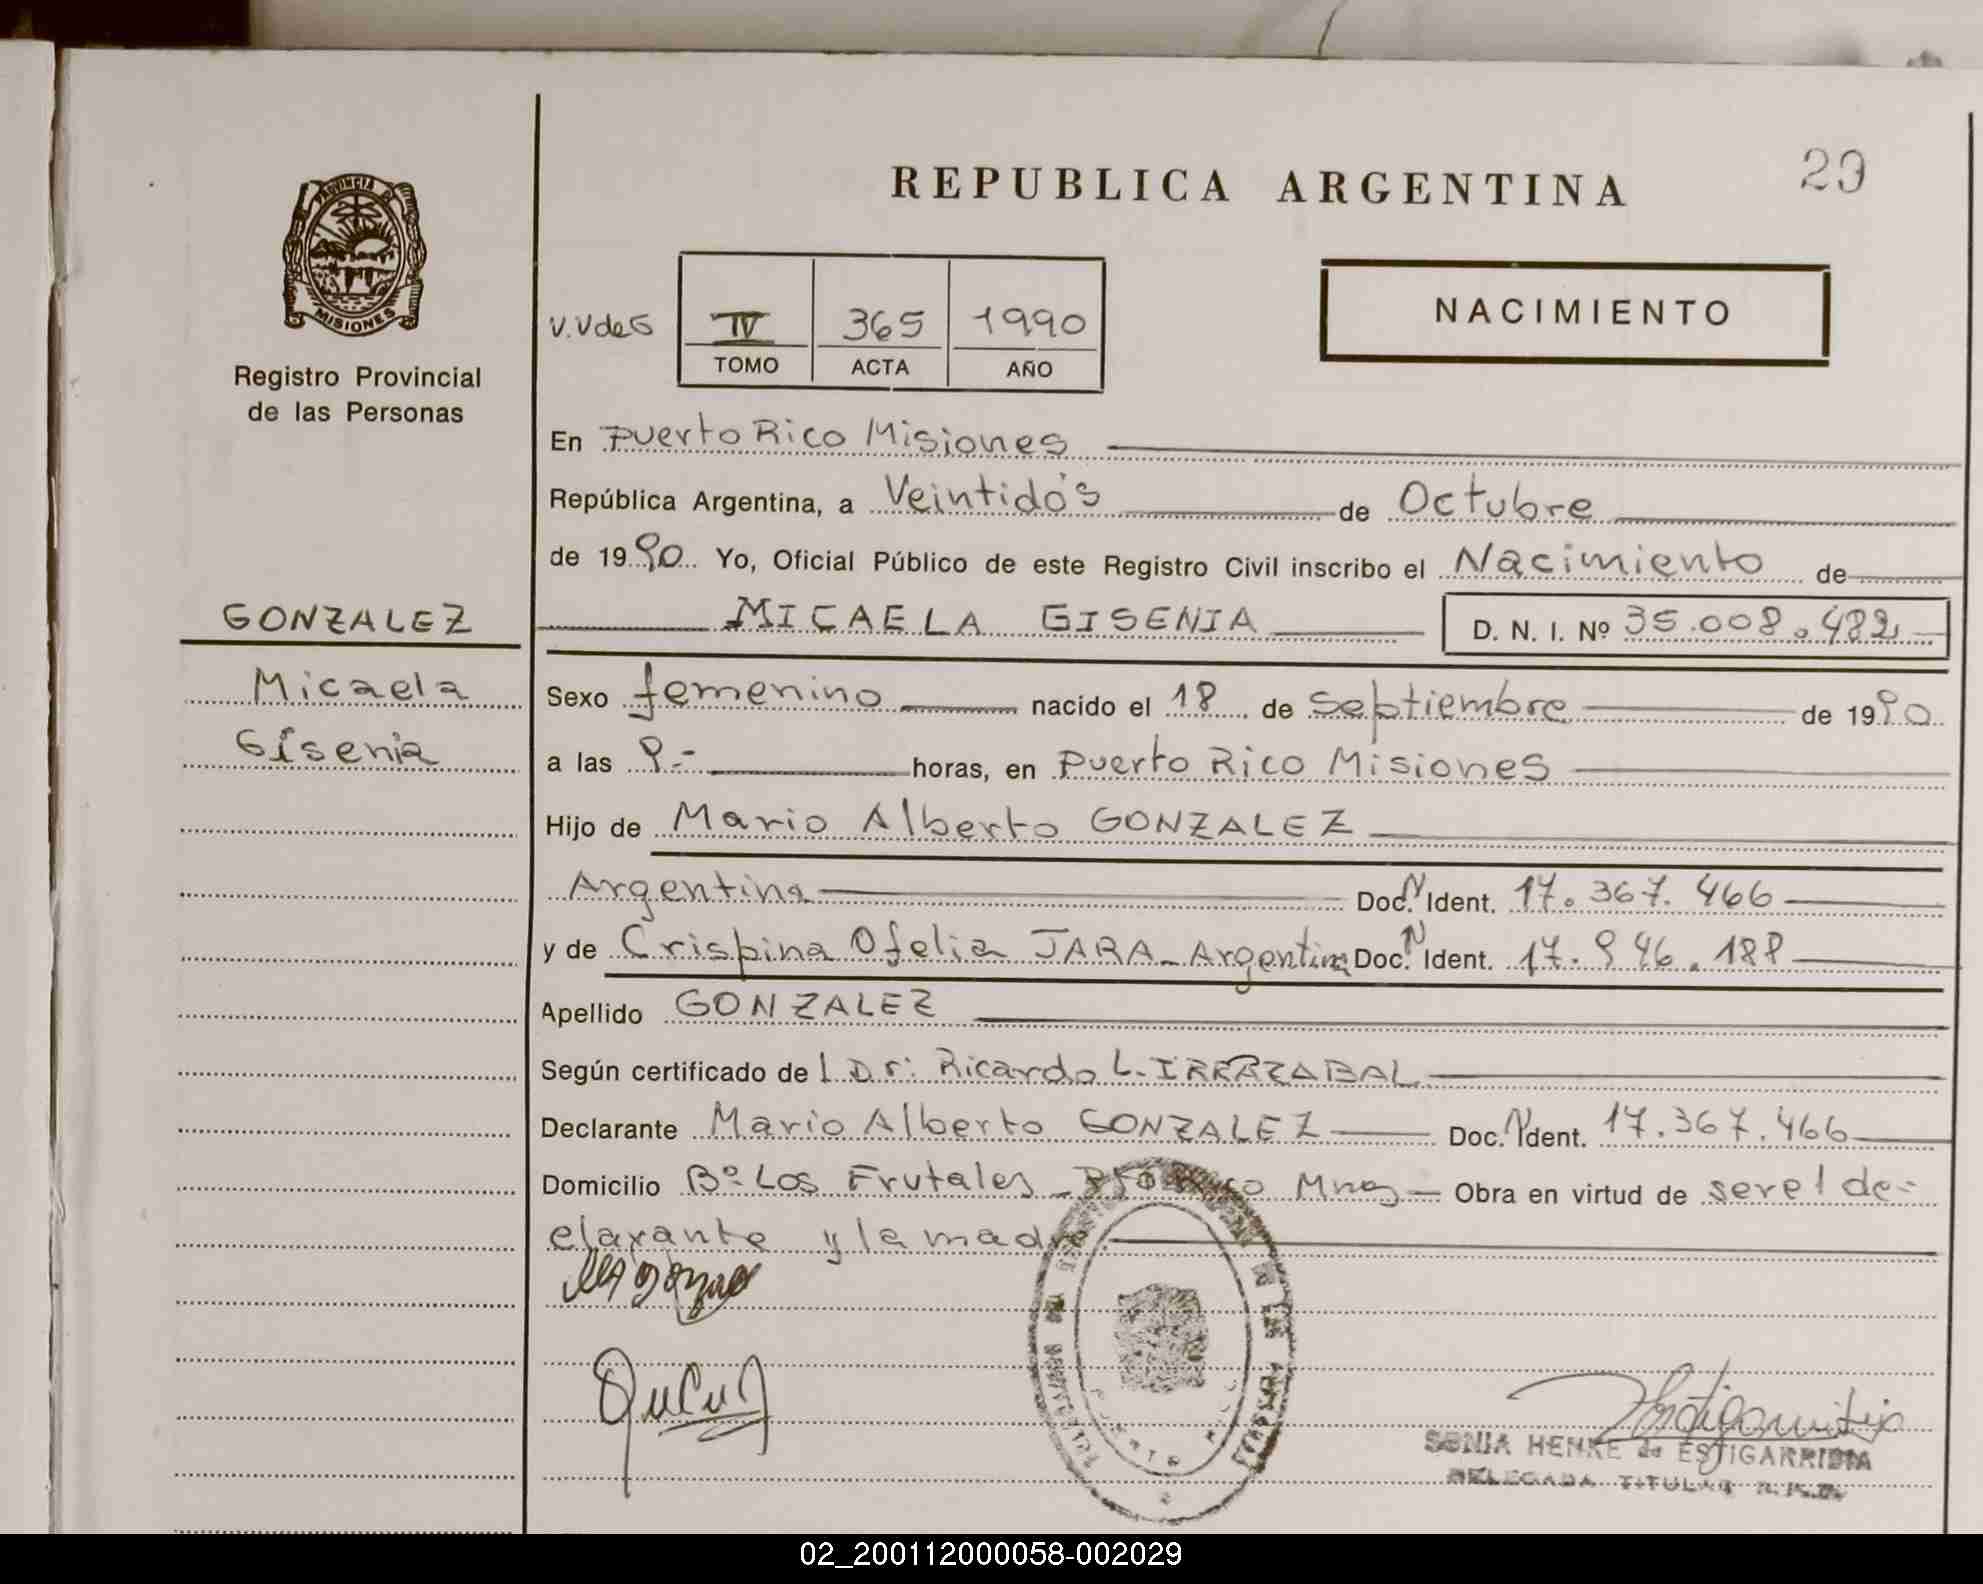 REPUBLICA ARGENTINA
29
PROVINCIA DE
MISIONES
Registro Provincial
de las Personas
V.V de S
IV 365 1990
TOMO ACTA AÑO
NACIMIENTO
En Puerto Rico Misiones
República Argentina, a Veintidós de Octubre
de 1990 Yo, Oficial Público de este Registro Civil inscribo el Nacimiento de
GONZALEZ
MICAELA GISENIA D. N. I. Nº 35.008.482
Micaela
Gisenia
Sexo femenino nacido el 18 de Septiembre de 1990
a las 9.- horas, en Puerto Rico Misiones
Hijo de Mario Alberto GONZALEZ
Argentina Doc. N Ident. 17.367.466
y de Crispina Ofelia JARA - Argentina Doc. N Ident. 17.946.188
Apellido GONZALEZ
Según certificado de l Dr. Ricardo L. IRRAZABAL
Declarante Mario Alberto GONZALEZ Doc. N Ident. 17.367.466
Domicilio Bº Los Frutales - Pto Rico Mnes Obra en virtud de ser el de-
clarante y la madre
SONIA HENKE de ESTIGARRIBIA
DELEGADA TITULAR R.P.P.
02_200112000058-002029